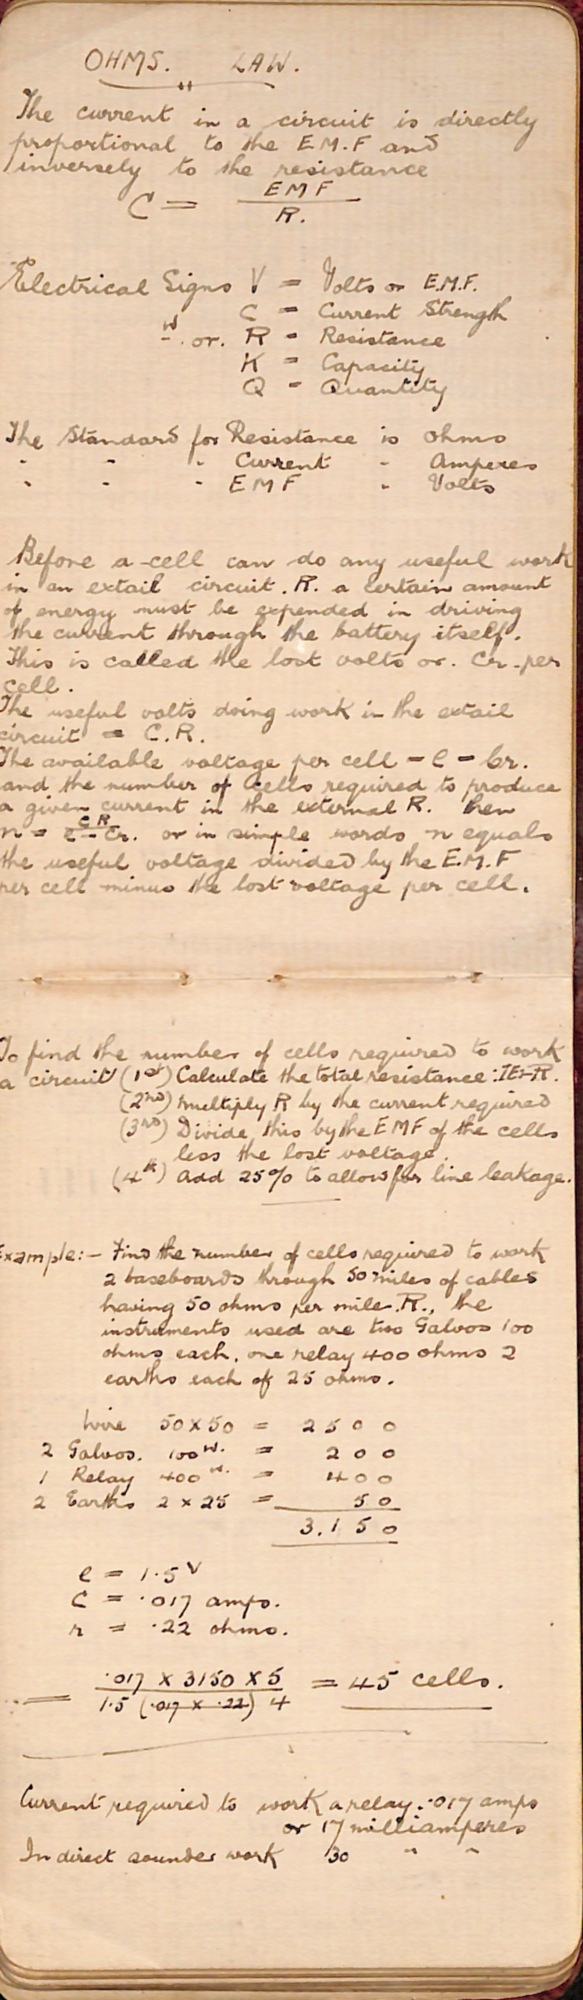 OHMS. LAW.
The current in a circuit is directly
proportional to the E.M.F and
inversely to the resistance
C = EMF
R.
Electrical Signs V = Volts or E.M.F.
C = Current Strength
or. R = Resistance
K = Capacity
Q = Quantity
The Standard for Resistance is ohms
" " " Current " Amperes
" " " EMF " Volts
Before a cell can do any useful work
in an extail circuit. R. a certain amount
of energy must be expended in driving
the current through the battery itself.
This is called the lost volts or. Cr. per
cell.
The useful volts doing work in the extail
circuit = C.R.
The available voltage per cell = e - Cr.
and the number of cells required to produce
a given current in the external R. then
n = CR
e-Cr. or in simple words n equals
the useful voltage divided by the E.M.F
per cell minus the lost voltage per cell.
To find the number of cells required to work
a circuit (1st) Calculate the total resistance
(2nd) Multiply R by the current required
(3rd) Divide this by the EMF of the cells
less the lost voltage.
(4th) Add 25% to allow for line leakage.
Example:- Find the number of cells required to work
2 baseboards through 50 miles of cables
having 50 ohms per mile. R., the
instruments used are two Galvos 100
ohms each, one relay 400 ohms 2
earths each of 25 ohms.
Wire 50 x 50 = 2500
2 Galvos. 100 ω. = 200
1 Relay 400 ω. = 400
2 Earths 2 x 25 = 50
3,150
e = 1.5 V
C = .017 amps.
r = .22 ohms.
= .017 x 3150 x 5 = 45 cells.
1.5 (.017 x .22) 4
Current required to work a relay: .017 amps
or 17 milliamperes
In direct sounder work 30 " "